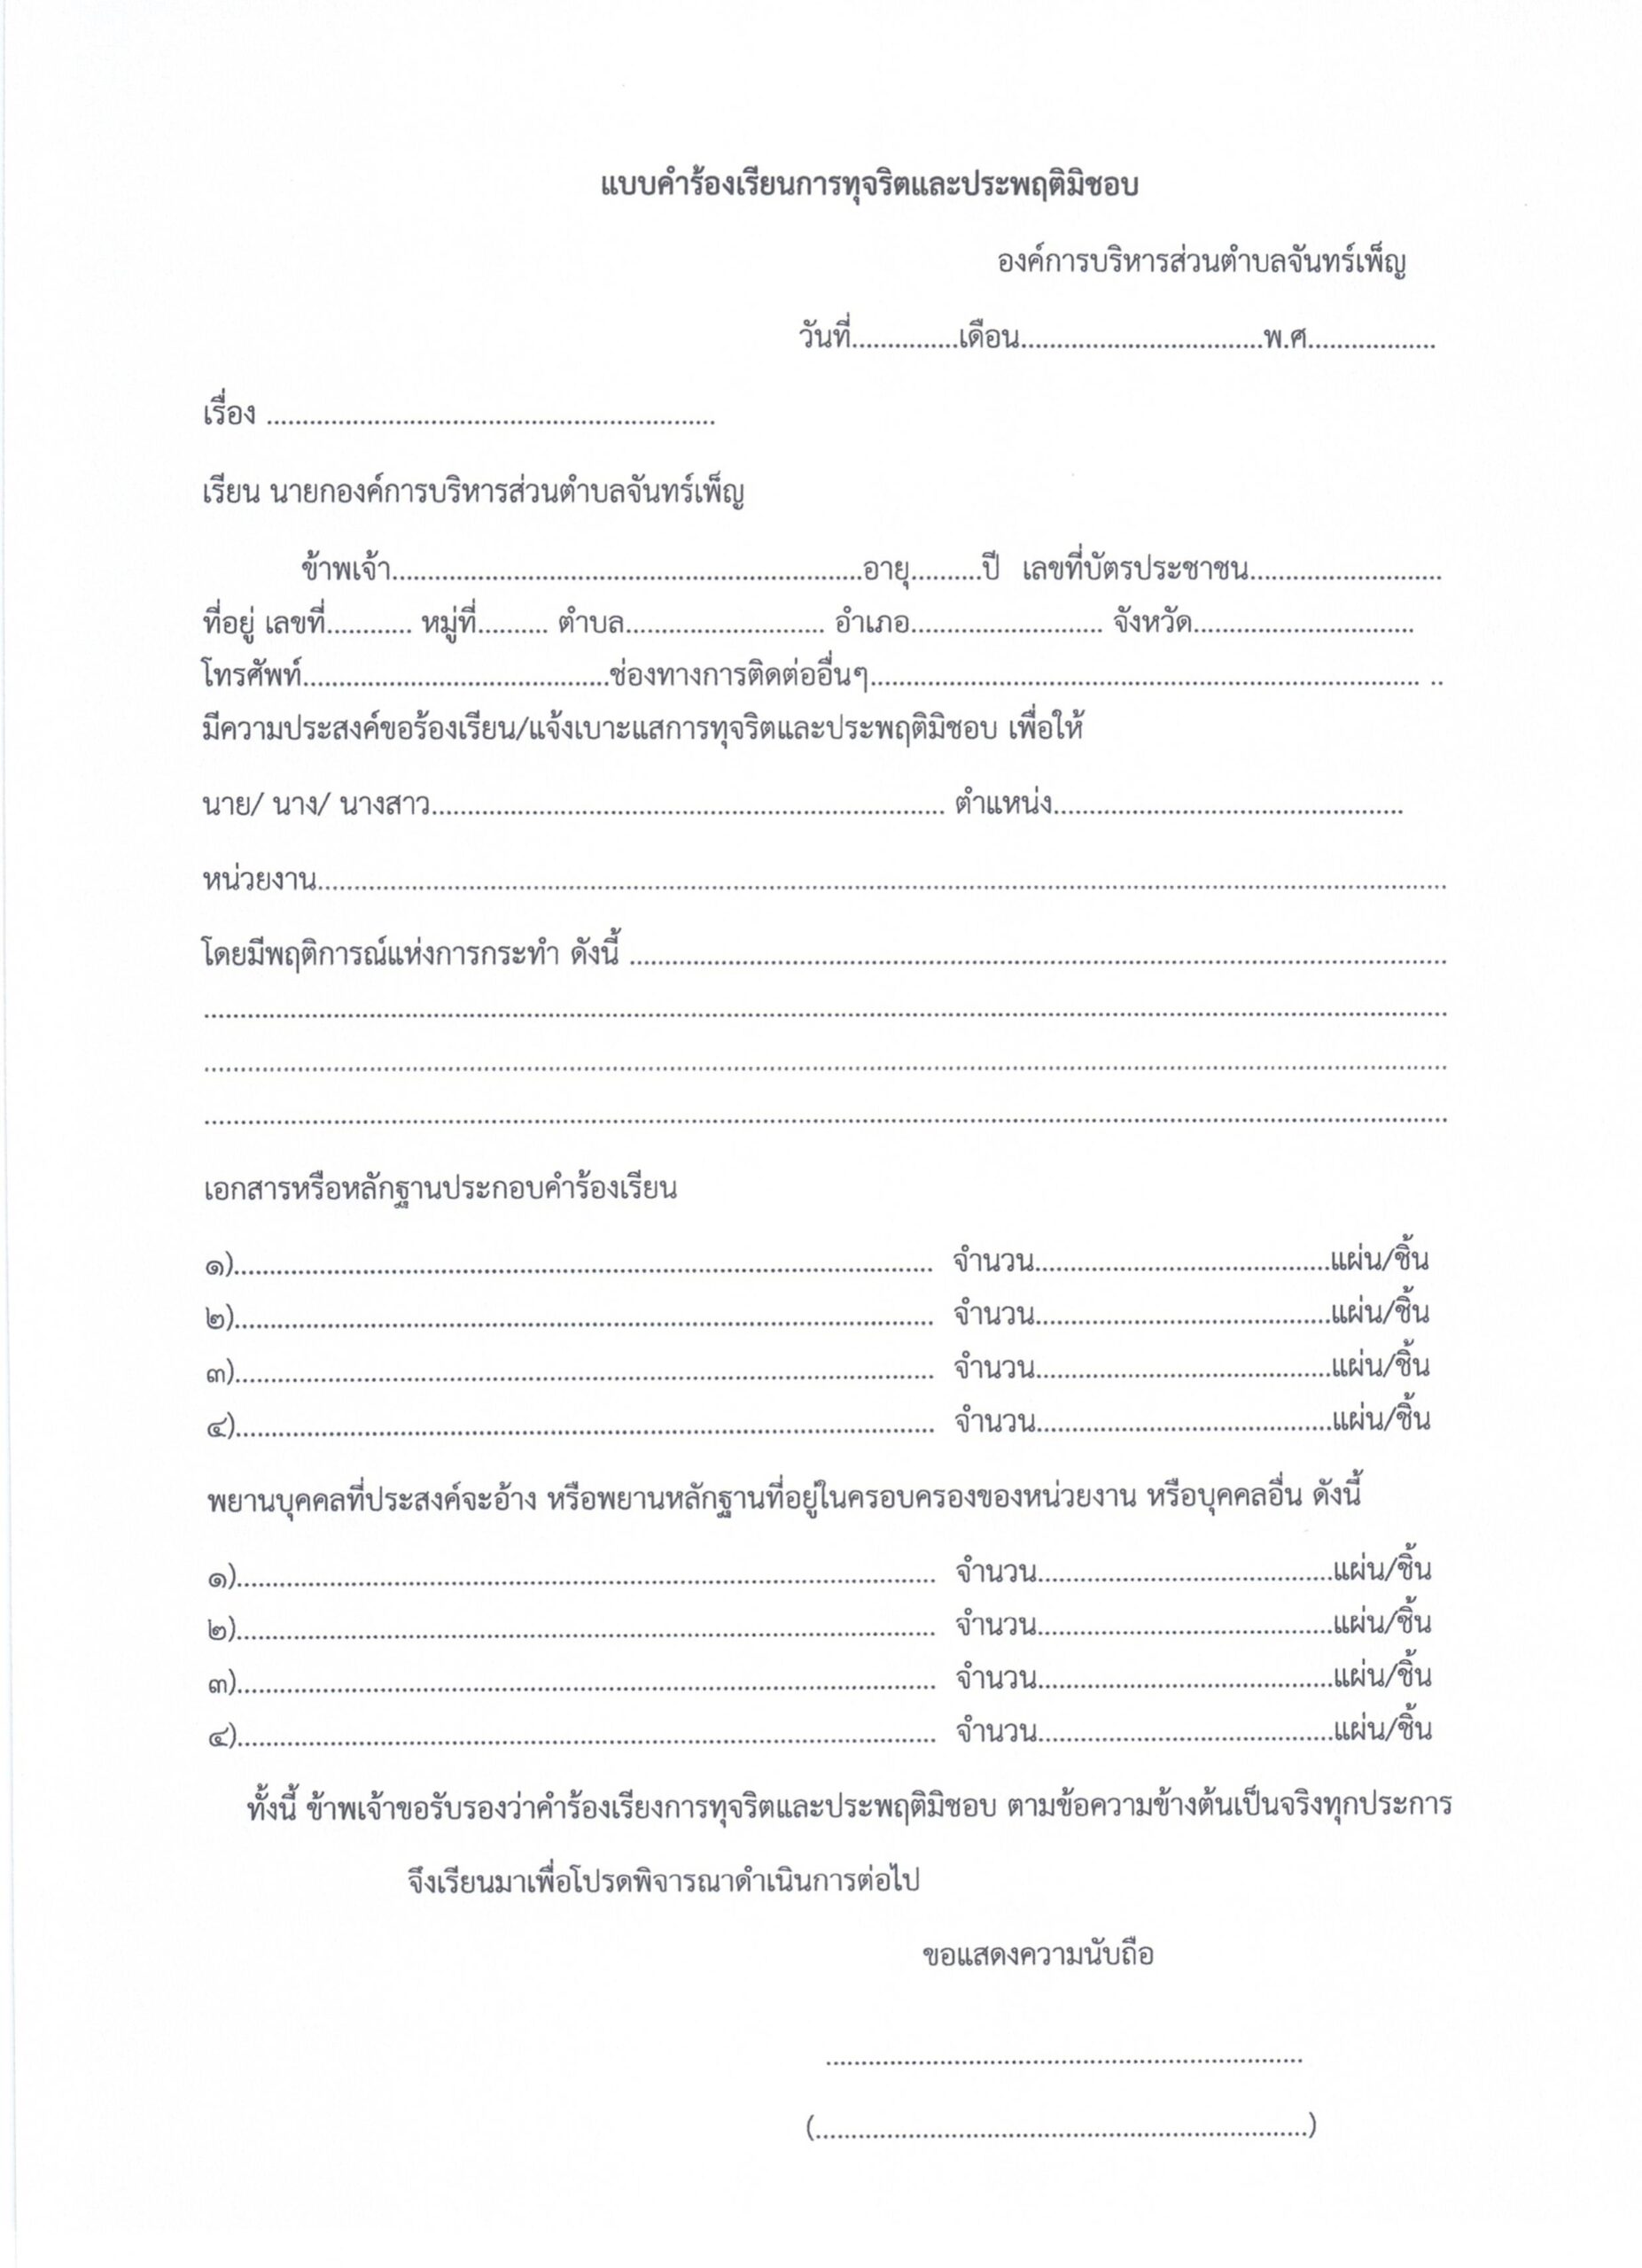 แบบคำร้องเรียนการทุจริตและประพฤติมิชอบ
องค์การบริหารส่วนตำบลจันทร์เพ็ญ
วันที่...............เดือน..................................พ.ศ..................
เรื่อง ...............................................................
เรียน นายกองค์การบริหารส่วนตำบลจันทร์เพ็ญ
ข้าพเจ้า..................................................................อายุ..........ปี เลขที่บัตรประชาชน...........................
ที่อยู่ เลขที่............ หมู่ที่.......... ตำบล............................ อำเภอ........................... จังหวัด...............................
โทรศัพท์...........................................ช่องทางการติดต่ออื่นๆ............................................................................. ..
มีความประสงค์ขอร้องเรียน/แจ้งเบาะแสการทุจริตและประพฤติมิชอบ เพื่อให้
นาย/ นาง/ นางสาว........................................................................ ตำแหน่ง.................................................
หน่วยงาน..............................................................................................................................................................
โดยมีพฤติการณ์แห่งการกระทำ ดังนี้ ..................................................................................................................
..............................................................................................................................................................................
..............................................................................................................................................................................
..............................................................................................................................................................................
เอกสารหรือหลักฐานประกอบคำร้องเรียน
๑).................................................................................................. จำนวน..........................................แผ่น/ชิ้น
๒).................................................................................................. จำนวน..........................................แผ่น/ชิ้น
๓).................................................................................................. จำนวน..........................................แผ่น/ชิ้น
๔).................................................................................................. จำนวน..........................................แผ่น/ชิ้น
พยานบุคคลที่ประสงค์จะอ้าง หรือพยานหลักฐานที่อยู่ในครอบครองของหน่วยงาน หรือบุคคลอื่น ดังนี้
๑).................................................................................................. จำนวน..........................................แผ่น/ชิ้น
๒).................................................................................................. จำนวน..........................................แผ่น/ชิ้น
๓).................................................................................................. จำนวน..........................................แผ่น/ชิ้น
๔).................................................................................................. จำนวน..........................................แผ่น/ชิ้น
ทั้งนี้ ข้าพเจ้าขอรับรองว่าคำร้องเรียงการทุจริตและประพฤติมิชอบ ตามข้อความข้างต้นเป็นจริงทุกประการ
จึงเรียนมาเพื่อโปรดพิจารณาดำเนินการต่อไป
ขอแสดงความนับถือ
...................................................................
(.....................................................................)